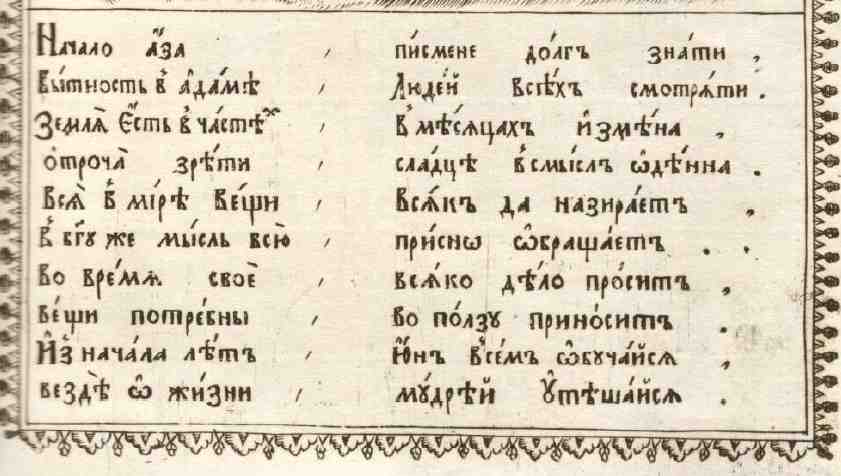 Нача́ло а҆́за , пи́смене до́лгъ зна́ти ,
Бы́тность в̾ а҆да́мѣ , Люде́й всѣ́хъ смотрѧ́ти .
Землѧ̀ є҆́сть в̾ ча́стѣхъ , В̾ мѣ́сѧцахъ и҆змѣ́на ,
ѻ҆троча̀ зрѣ́ти , сла́дцѣ в̾смы́слъ ѡ҆дѣ́нна .
Всѧ̀ в̾ мі́рѣ ве́щи , всѧ́къ да назира́етъ ,
В̾ бг҃у же мы́сль всю̀ , при́снѡ ѡ҆браща́етъ .
Во вре́мѧ своѐ , всѧ́ко дѣ́ло про́ситъ ,
ве́щи потре́бны , во по́лзу прино́ситъ .
И҆з̾ нача́ла лѣ́тъ , Ю҆́нъ в̾се́мъ ѡ҆буча́йсѧ ,
вездѣ̀ ѡ҆ жи́зни , му́дрѣй ᲂу҆тѣша́йсѧ .